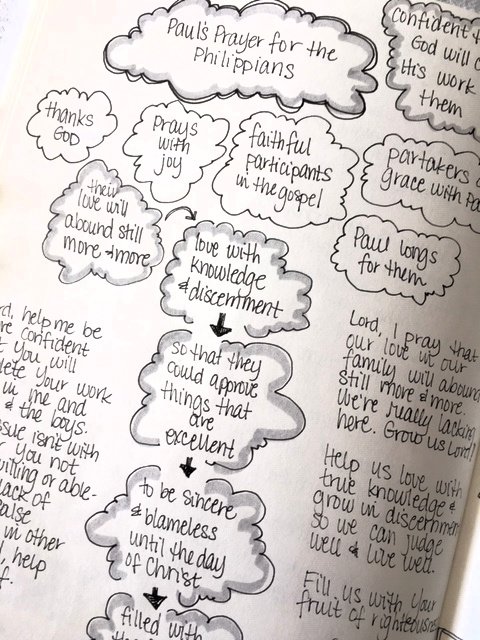 Paul's Prayer for the
Philippians
confident
God will
His work
them
thanks
GOD
prays
with
joy
faithful
participants
in the gospel
partakers
grace with
their
love will
abound still
more & more
love with
knowledge
& discernment
Paul longs
for them
so that they
could approve
things that
are
excellent
to be sincere
& blameless
until the day
of Christ
filled with
help me be
confident
you will
your work
in me and
& the boys.
isn't with
you not
willing or able-
lack of
in other
help
Lord, I pray that
our love in our
family will abound
still more & more.
We're really lacking
here. Grow us Lord!
Help us love with
true knowledge &
grow in discernment
so we can judge
well & live well.
Fill us with your
fruit of righteousness